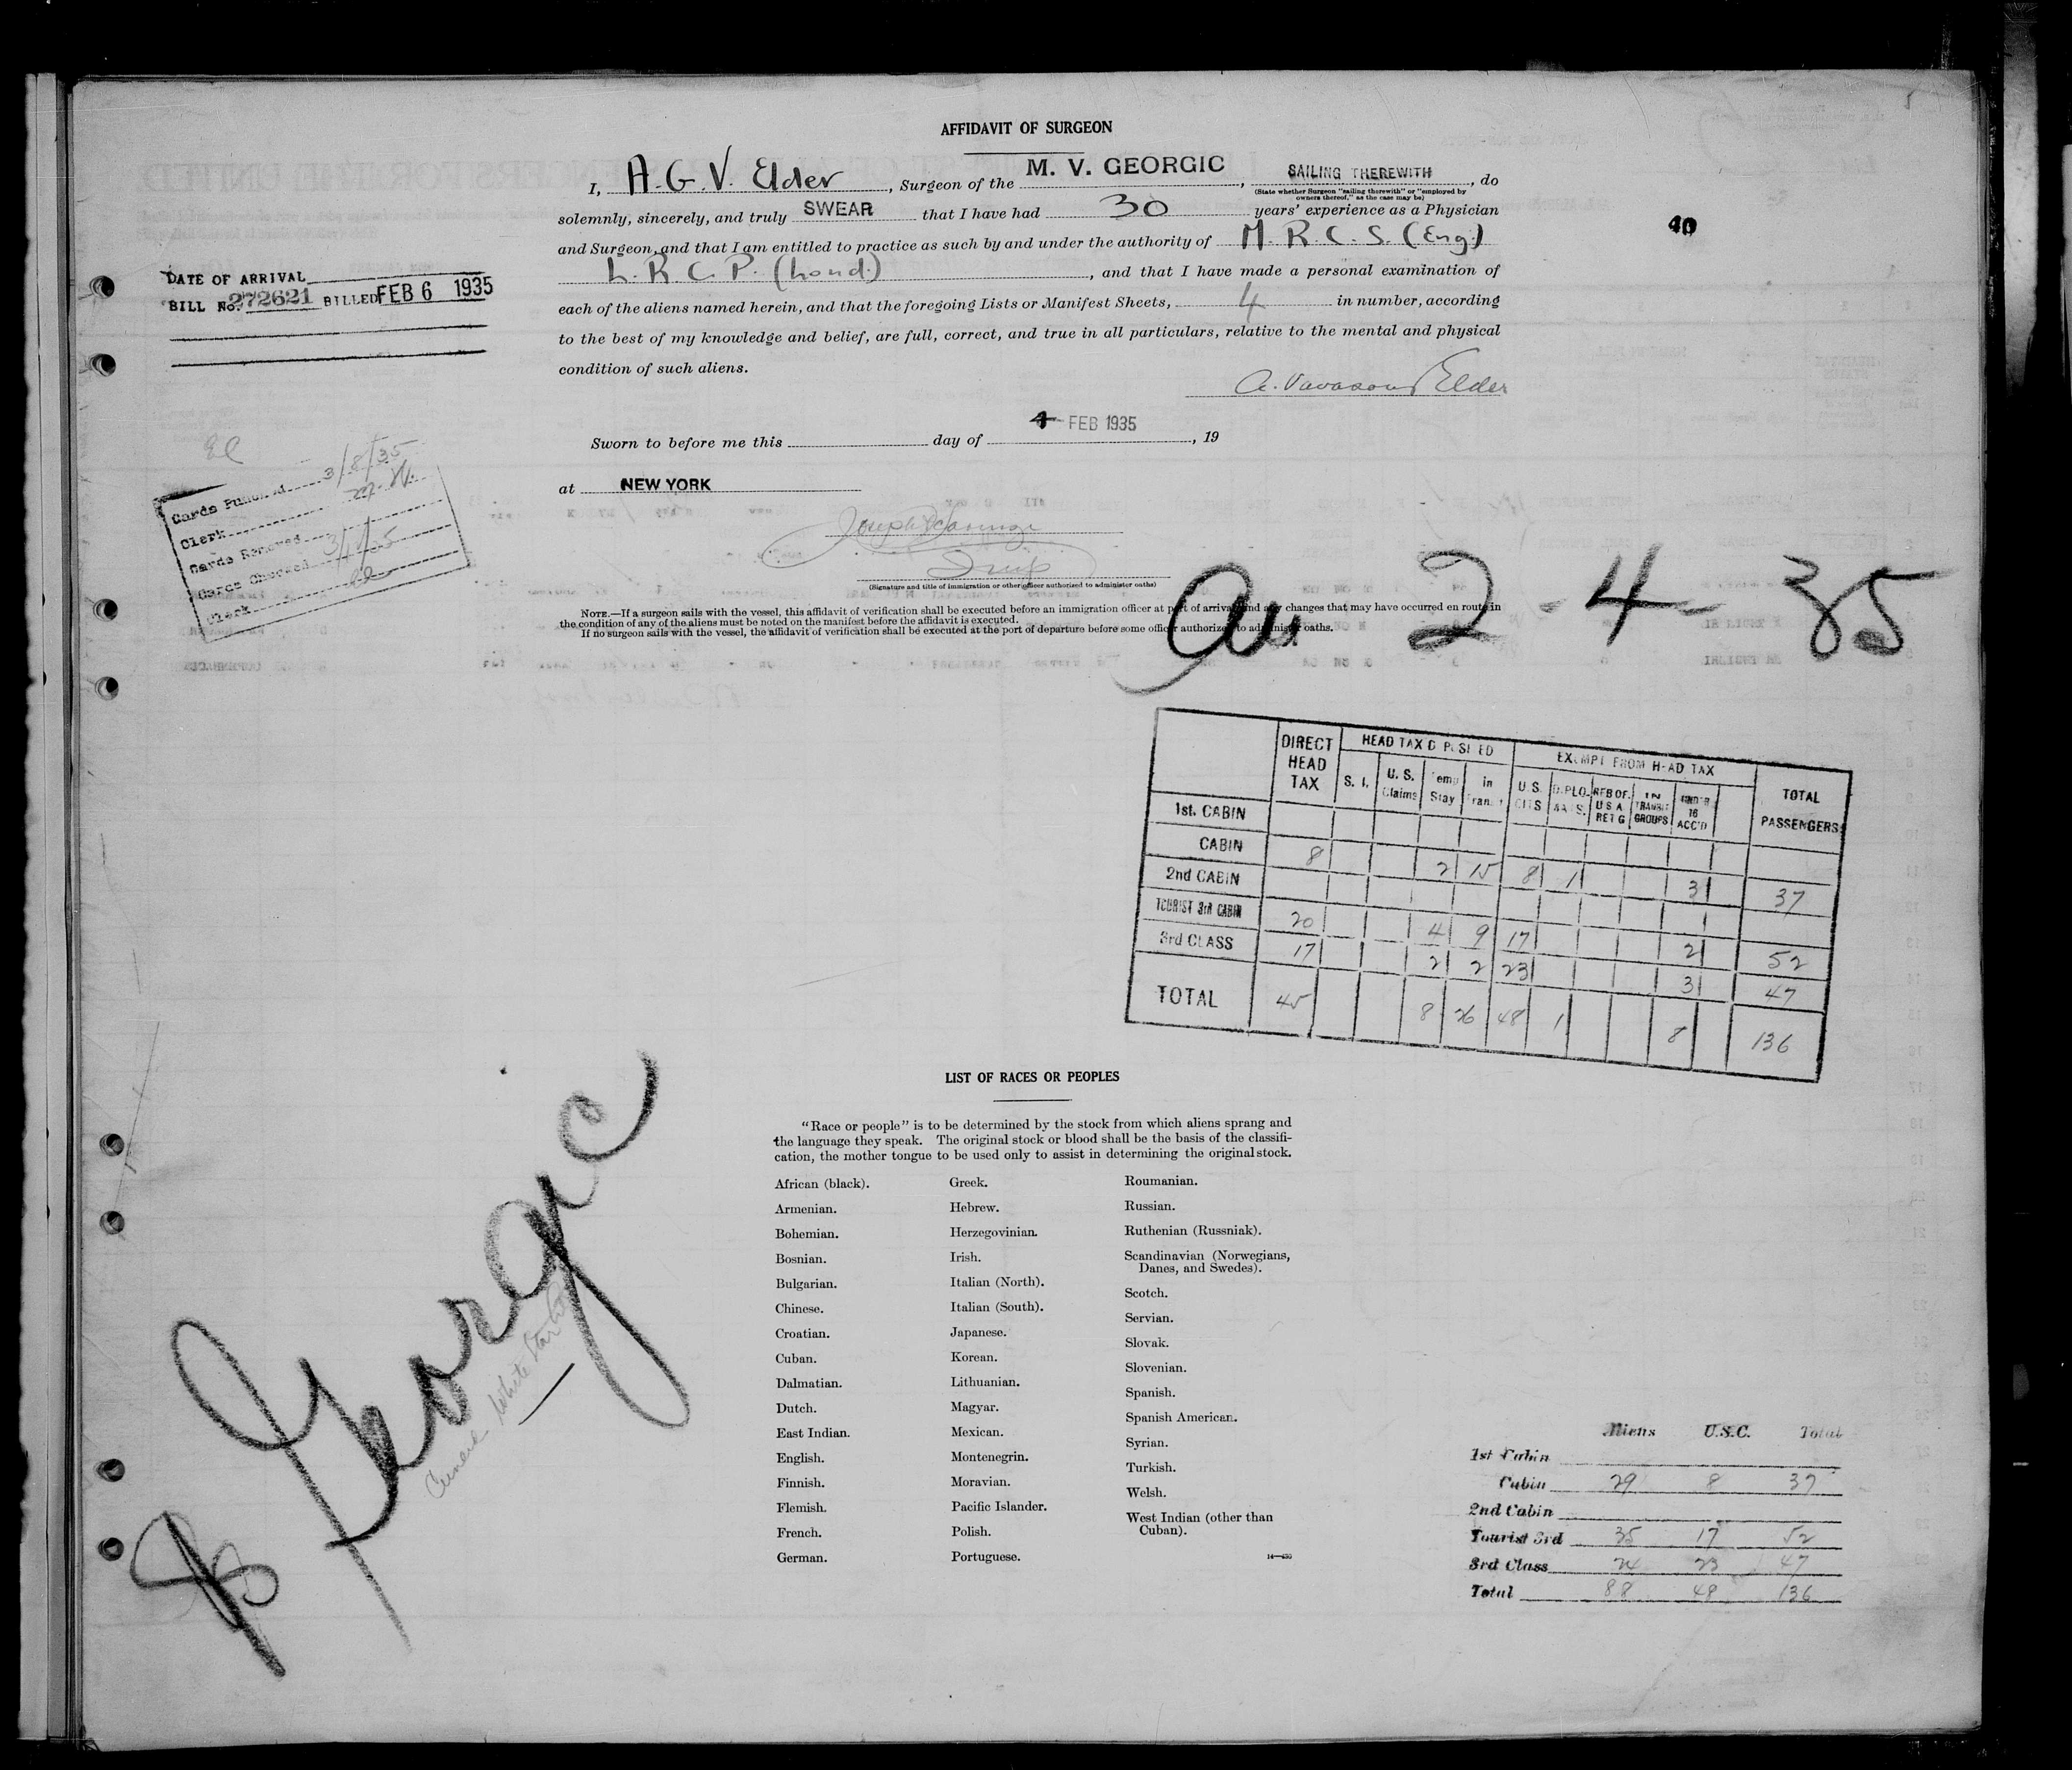 AFFIDAVIT OF SURGEON
I, A. G. V. Elder, Surgeon of the M. V. GEORGIC, SAILING THEREWITH, do
(State whether Surgeon "sailing therewith" or "employed by owners thereof," as the case may be)
solemnly, sincerely, and truly SWEAR that I have had 30 years' experience as a Physician
and Surgeon, and that I am entitled to practice as such by and under the authority of M. R. C. S. (Eng.)
L. R. C. P. (Lond.), and that I have made a personal examination of
each of the aliens named herein, and that the foregoing Lists or Manifest Sheets, 4 in number, according
to the best of my knowledge and belief, are full, correct, and true in all particulars, relative to the mental and physical
condition of such aliens.
A. Vavasour Elder
40
DATE OF ARRIVAL
BILL No. 272621 BILLED FEB 6 1935
Sworn to before me this day of 4 FEB 1935, 19
at NEW YORK
(Signature and title of immigration or other officer authorized to administer oaths)
Cards Punched 3/8/35
Clerk
Cards Removed
Cards Checked
Clerk
NOTE.—If a surgeon sails with the vessel, this affidavit of verification shall be executed before an immigration officer at port of arrival and any changes that may have occurred en route in
the condition of any of the aliens must be noted on the manifest before the affidavit is executed.
If no surgeon sails with the vessel, the affidavit of verification shall be executed at the port of departure before some officer authorized to administer oaths.
2-4-35
DIRECT HEAD TAX HEAD TAX DEPOSITED EXEMPT FROM HEAD TAX TOTAL PASSENGERS
S. I. U. S. Claims Temp Stay in Transit U. S. CITS DIPLOMATS. RES OF. U S A RET G IN TRANSIT GROUPS UNDER 16 ACC'D
1st. CABIN
CABIN 8 2 15 8 1 3 37
2nd CABIN
TOURIST 3rd CABIN 20 4 9 17 2 52
3rd CLASS 17 2 2 23 3 47
TOTAL 45 8 26 48 1 8 136
Georgic
Cunard White Star
LIST OF RACES OR PEOPLES
"Race or people" is to be determined by the stock from which aliens sprang and
the language they speak. The original stock or blood shall be the basis of the classifi-
cation, the mother tongue to be used only to assist in determining the original stock.
African (black).
Armenian.
Bohemian.
Bosnian.
Bulgarian.
Chinese.
Croatian.
Cuban.
Dalmatian.
Dutch.
East Indian.
English.
Finnish.
Flemish.
French.
German.
Greek.
Hebrew.
Herzegovinian.
Irish.
Italian (North).
Italian (South).
Japanese.
Korean.
Lithuanian.
Magyar.
Mexican.
Montenegrin.
Moravian.
Pacific Islander.
Polish.
Portuguese.
Roumanian.
Russian.
Ruthenian (Russniak).
Scandinavian (Norwegians,
Danes, and Swedes).
Scotch.
Servian.
Slovak.
Slovenian.
Spanish.
Spanish American.
Syrian.
Turkish.
Welsh.
West Indian (other than
Cuban).
Aliens U.S.C. Total
1st Cabin
Cabin 29 8 37
2nd Cabin
Tourist 3rd 35 17 52
3rd Class 24 23 47
Total 88 48 136